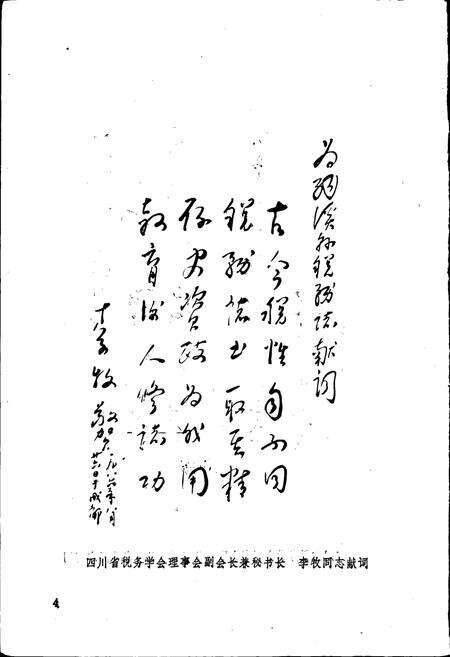 为溪县税务志献词
古今税性自不同
税务志书取其精
存史资政为我用
教育后人修志功
李牧
一九八六年八月
廿六日于成都
四川省税务学会理事会副会长兼秘书长 李牧同志献词
4